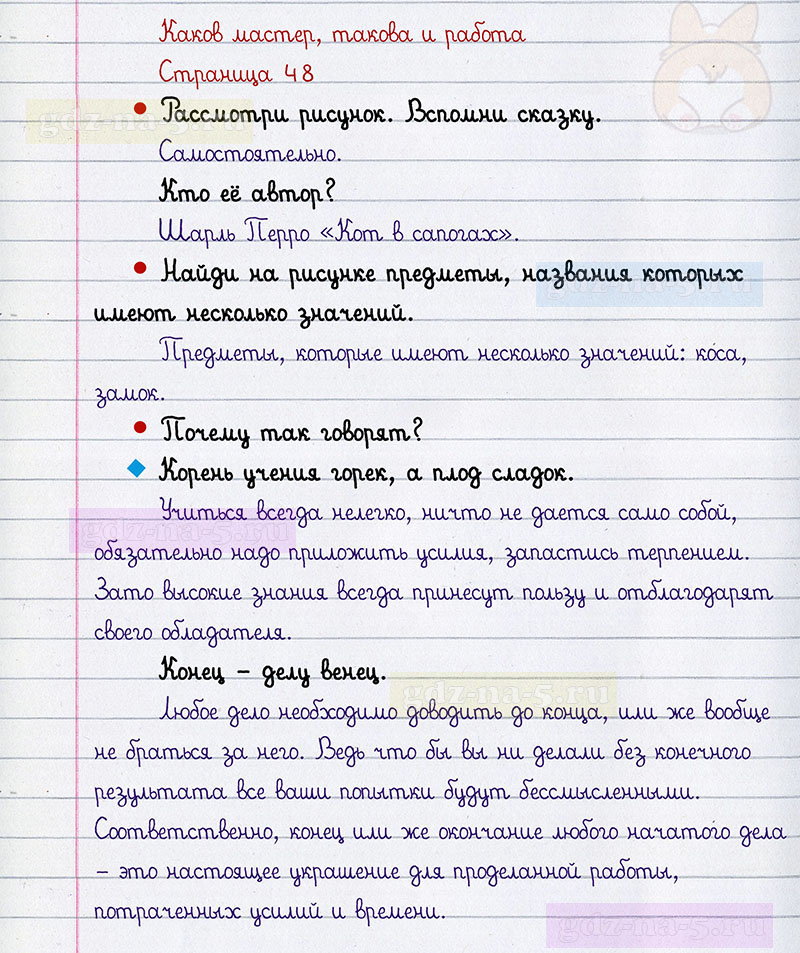 Каков мастер, такова и работа
Страница 48
Рассмотри рисунок. Вспомни сказку.
Самостоятельно.
Кто её автор?
Шарль Перро «Кот в сапогах».
Найди на рисунке предметы, названия которых
имеют несколько значений.
Предметы, которые имеют несколько значений: коса,
замок.
Почему так говорят?
Корень учения горек, а плод сладок.
Учиться всегда нелегко, ничто не дается само собой,
обязательно надо приложить усилия, запастись терпением.
Зато высокие знания всегда принесут пользу и отблагодарят
своего обладателя.
Конец – делу венец.
Любое дело необходимо доводить до конца, или же вообще
не браться за него. Ведь что бы вы ни делали без конечного
результата все ваши попытки будут бессмысленными.
Соответственно, конец или же окончание любого начатого дела
– это настоящее украшение для проделанной работы,
потраченных усилий и времени.
gdz-na-5.ru
gdz-na-5.ru
gdz-na-5.ru
gdz-na-5.ru
gdz-na-5.ru